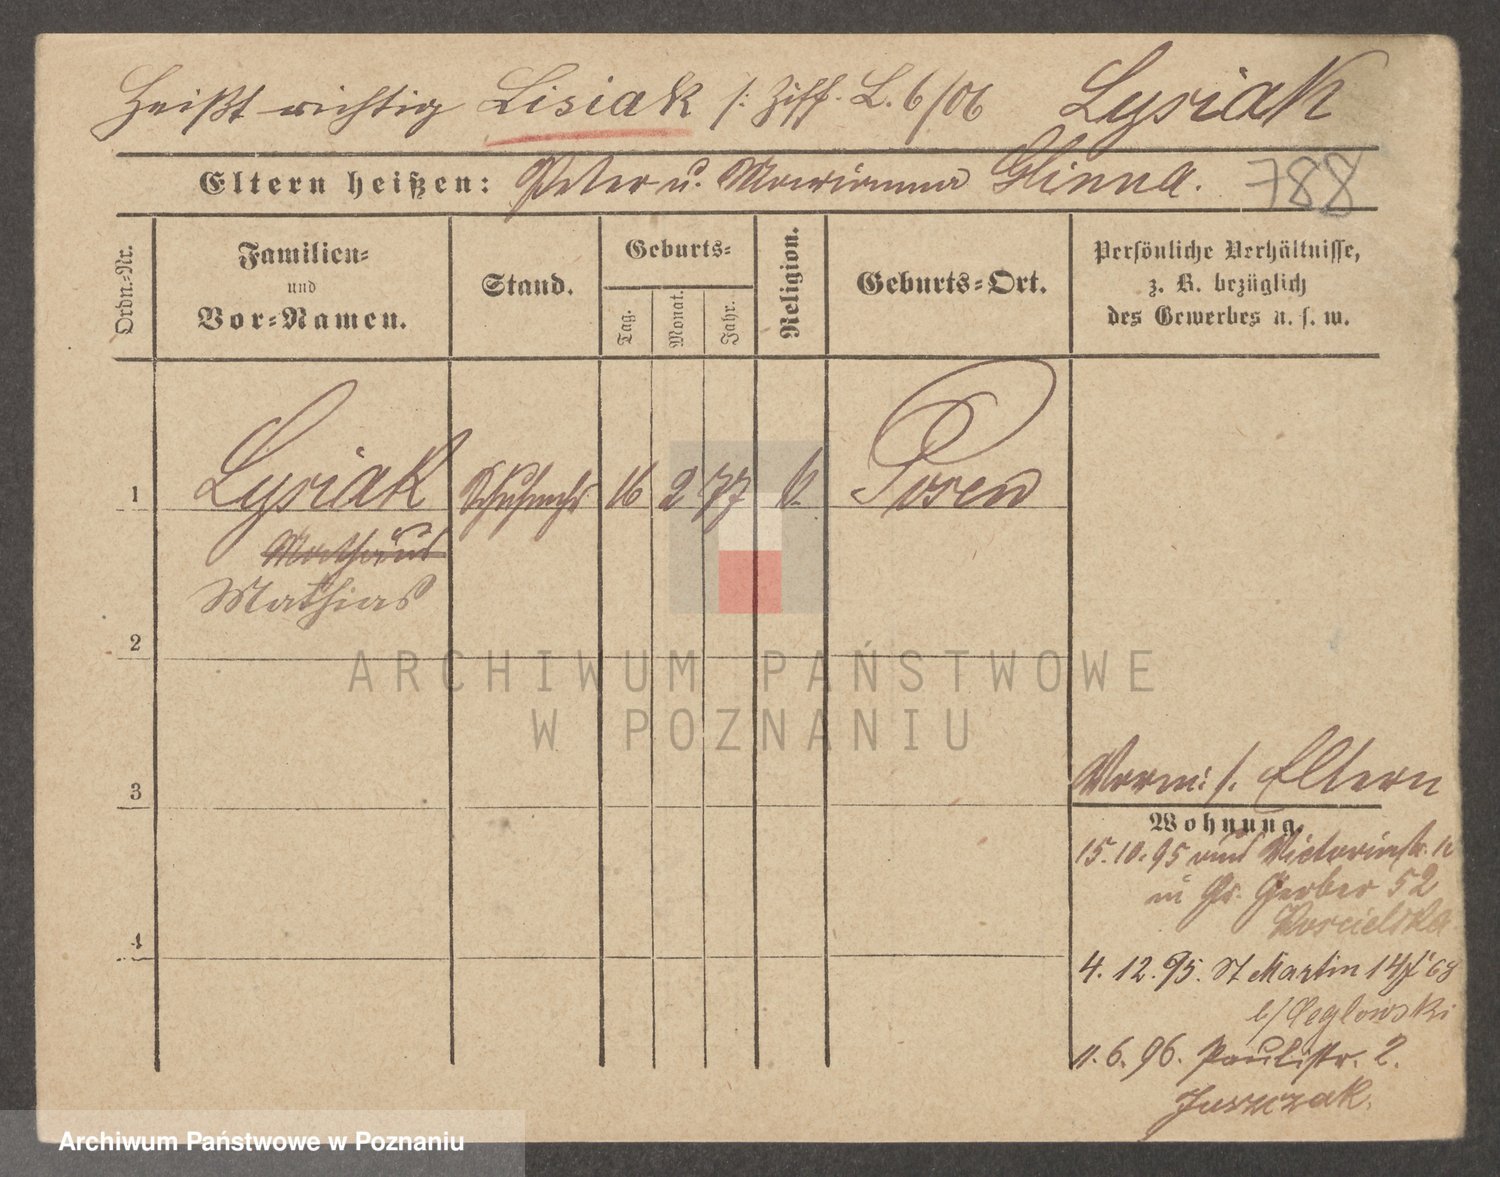 Heißt richtig Lisiak /: Ziff. L. 6/06 Lysiak
Eltern heißen: Peter u. Marianna Glinna.
788
Ordn.-Nr.
Familien-
und
Vor-Namen.
Stand.
Geburts-
Tag.
Monat.
Jahr.
Religion.
Geburts-Ort.
Persönliche Verhältnisse,
z. B. bezüglich
des Gewerbes u. s. w.
1 Lysiak 16 2 77 k. Posen
Mathäus
Mathias
2
ARCHIWUM PAŃSTWOWE
W POZNANIU
3
Vorm: s. Eltern
Wohnung.
15.10.95 Victoriastr.
Gr. Gerber 52
Koscielska
4
4. 12. 95. St Martin 68
b/ Ceglowski
11. 6. 96. Paulistr. 2.
Juszczak.
Archiwum Państwowe w Poznaniu